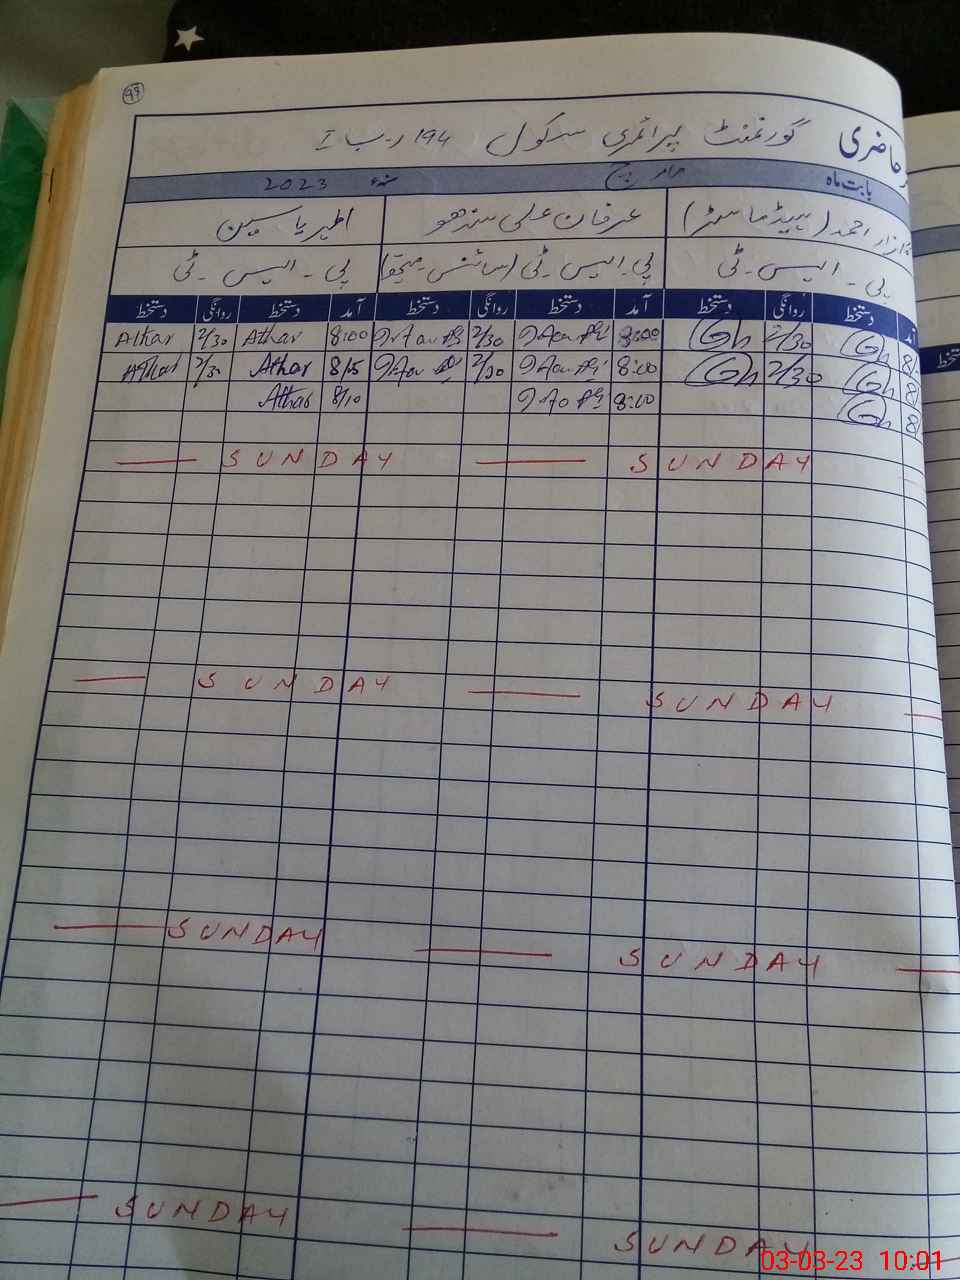 99
حاضری گورنمنٹ پرائمری سکول 194 ر۔ب I
بابت ماہ مارچ سنہء 2023
احمد (ہیڈ ماسٹر) عرفان علی سندھو اطہر یاسین
پی۔ایس۔ٹی پی۔ایس۔ٹی (سائنس۔میتھ) پی۔ایس۔ٹی
آمد دستخط روانگی دستخط آمد دستخط روانگی دستخط آمد دستخط روانگی دستخط
8 2/30 8:00 2/30 8:00 Athar 2/30 Athar
8 2/30 8:00 2/30 8/15 Athar 2/30 Athar
8 8:00 8/10 Athar
SUNDAY SUNDAY
SUNDAY SUNDAY
SUNDAY SUNDAY
SUNDAY SUNDAY
03-03-23 10:01